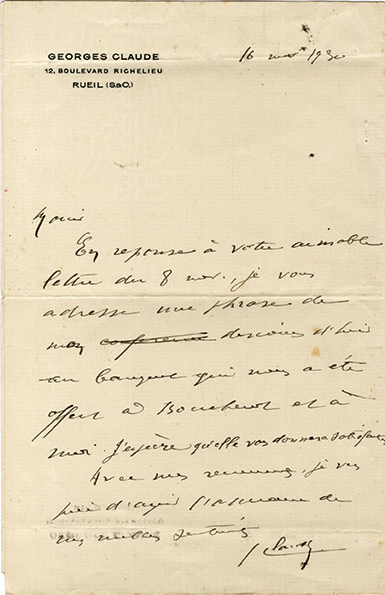 GEORGES CLAUDE
12, BOULEVARD RICHELIEU
RUEIL (S&O.)
16 1930
En reponse à votre aimable
lettre du 8 nov., je vous
adresse une phrase de
mon conférence discours d'hier
au banquet qui nous a été
offert à Boucherot et à
moi. J'espère qu'elle vous donnera satisfaction.
Avec mes je vous
prie d'agréer l'assurance de
mes